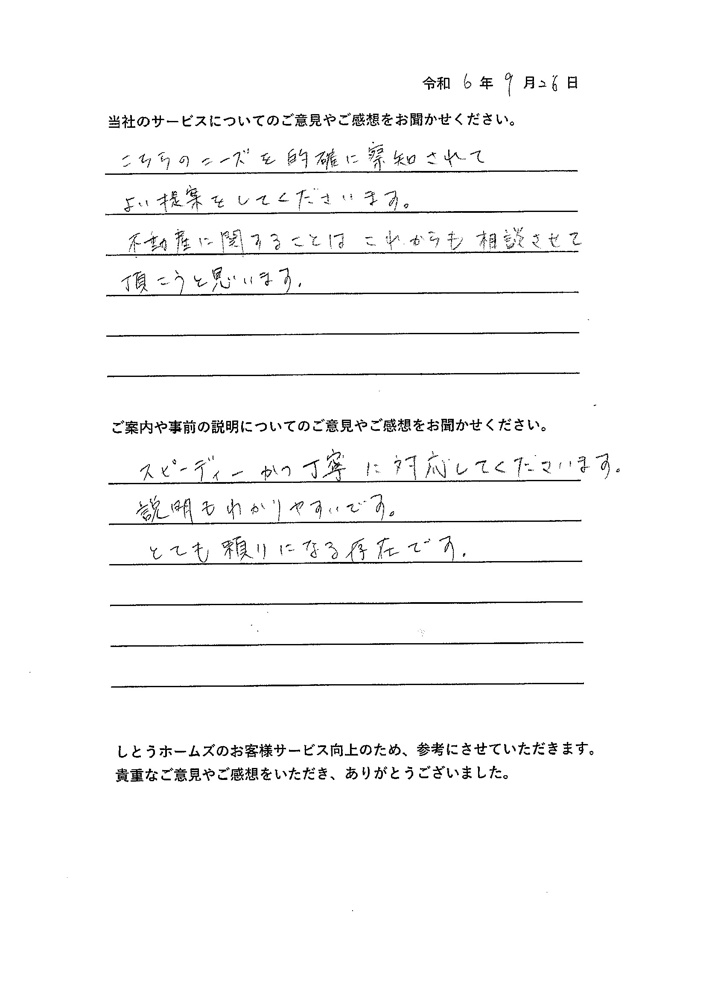 令和 6 年 9 月 26 日
当社のサービスについてのご意見やご感想をお聞かせください。
こちらのニーズを的確に察知されて
よい提案をしてくださいます。
不動産に関することはこれからも相談させて
頂こうと思います。
ご案内や事前の説明についてのご意見やご感想をお聞かせください。
スピーディーかつ丁寧に対応してくださいます。
説明もわかりやすいです。
とても頼りになる存在です。
しとうホームズのお客様サービス向上のため、参考にさせていただきます。
貴重なご意見やご感想をいただき、ありがとうございました。